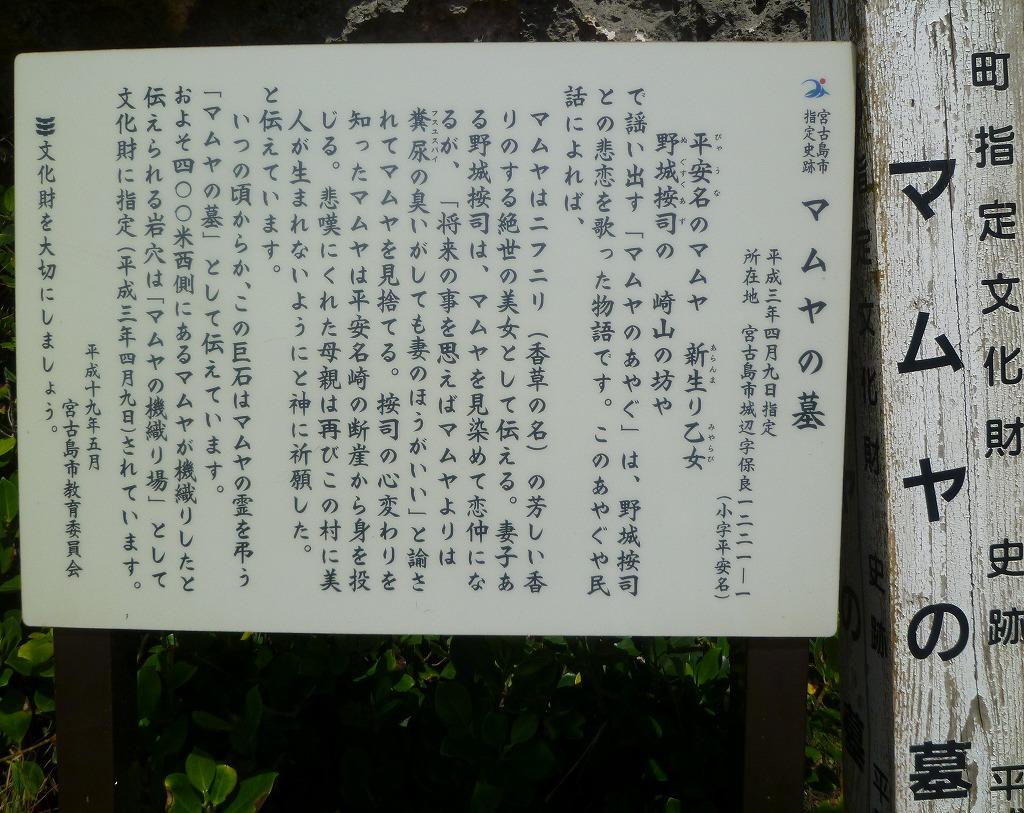 町指定文化財 史跡 平
マムヤの墓
宮古島市
指定史跡
マムヤの墓
平成三年四月九日指定
所在地 宮古島市城辺字保良一二二一―一
(小字平安名)
平安名のマムヤ 新生り乙女
びゃうな
あらんま
みやらび
野城按司の 崎山の坊や
ぬぐすくあず
で謡い出す「マムヤのあやぐ」は、野城按司
との悲恋を歌った物語です。このあやぐや民
話によれば、
マムヤはニフニリ(香草の名)の芳しい香
りのする絶世の美女として伝る。妻子あ
る野城按司は、マムヤを見染めて恋仲にな
るが、「将来の事を思えばマムヤよりは
糞尿の臭いがしても妻のほうがいい」と諭さ
れてマムヤを見捨てる。按司の心変わりを
知ったマムヤは平安名崎の断崖から身を投
じる。悲嘆にくれた母親は再びこの村に美
人が生まれないようにと神に祈願した。
と伝えています。
いつの頃からか、この巨石はマムヤの霊を弔う
「マムヤの墓」として伝えています。
およそ四〇〇米西側にあるマムヤが機織りしたと
伝えられる岩穴は「マムヤの機織り場」として
文化財に指定(平成三年四月九日)されています。
平成十九年五月
宮古島市教育委員会
文化財を大切にしましょう。